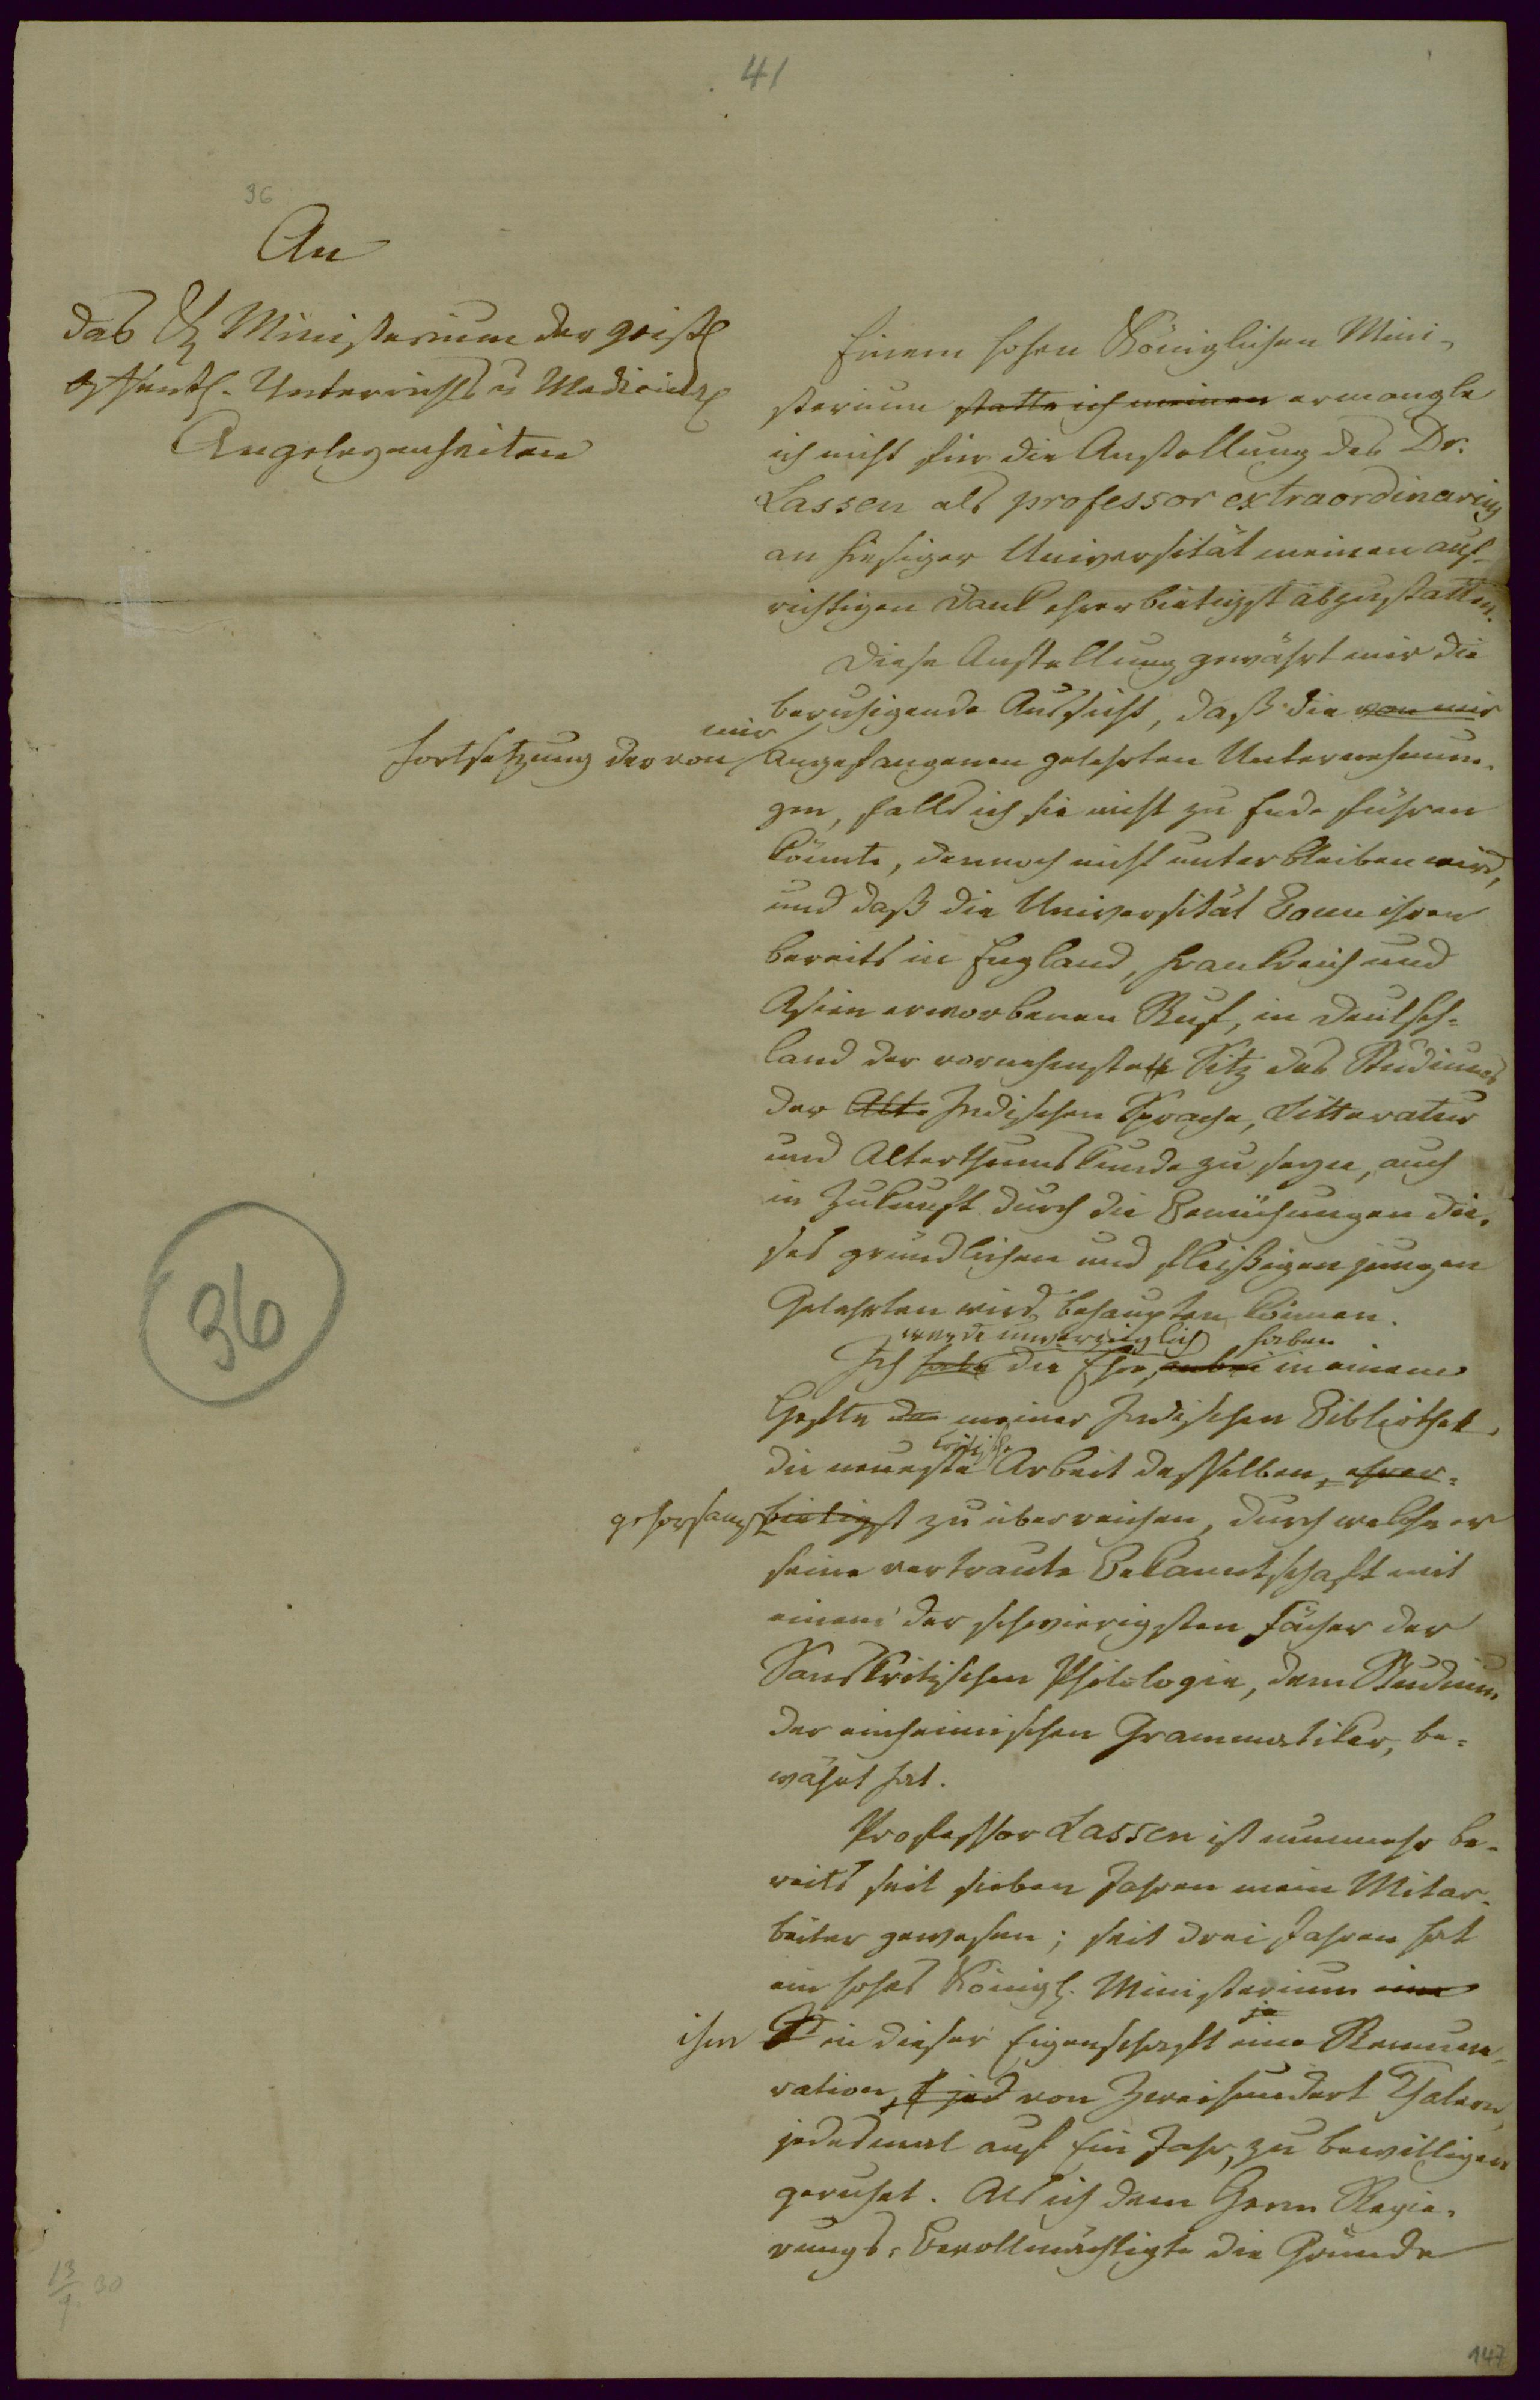 41
36
An
das K Ministerium der geistl
öffentl. Unterrichts u Medicinal
Angelegenheiten
Einem hohen Königlichen Mini-
sterium statte ich meinen ermangle
ich nicht für die Anstellung des Dr.
Lassen als professor extraordinarius
an hiesiger Universität meinen auf-
richtigen Dank ehrerbietigst abzustatten.
Diese Anstellung gewährt mir die
beruhigende Aussicht, daß die von mir
mir
Fortsetzung der von angefangenen gelehrten Unternehmun-
gen, falls ich sie nicht zu Ende führen
könnte, dennoch nicht unterbleiben wird,
und daß die Universität Bonn ihren
bereits in England, Frankreich und
Asien erworbenen Ruf, in Deutsch-
land der vornehmste Sitz des Studiums
der Alt Indischen Sprache, Litteratur
und Alterthumskunde zu seyn, auch
in Zukunft durch die Bemühungen die-
ses gründlichen und fleißigen jungen
Gelehrten wird behaupten können.
werde unverzüglich haben
Ich habe die Ehre, anbei in einem
Hefte der meiner Indischen Bibliothek,
kritische
die neueste Arbeit desselben, ehrer-
gehorsamst bietigst zu überreichen, durch welche er
seine vertraute Bekanntschaft mit
einem der schwierigsten Fächer der
Sanskritischen Philologie, dem Studium
der einheimischen Grammatiker, be-
währt hat.
Professor Lassen ist nunmehr be-
reits seit sieben Jahren mein Mitar-
beiter gewesen; seit drei Jahren hat
ein hohes Königl. Ministerium eine
je
ihm in dieser Eigenschaft eine Remune-
ration, jed von Zweihundert Thalern,
jedesmal auf Ein Jahr, zu bewilligen
geruhet. Als ich dem Herrn Regie-
rungs-Bevollmächtigte die Gründe
36
13/9 30
147